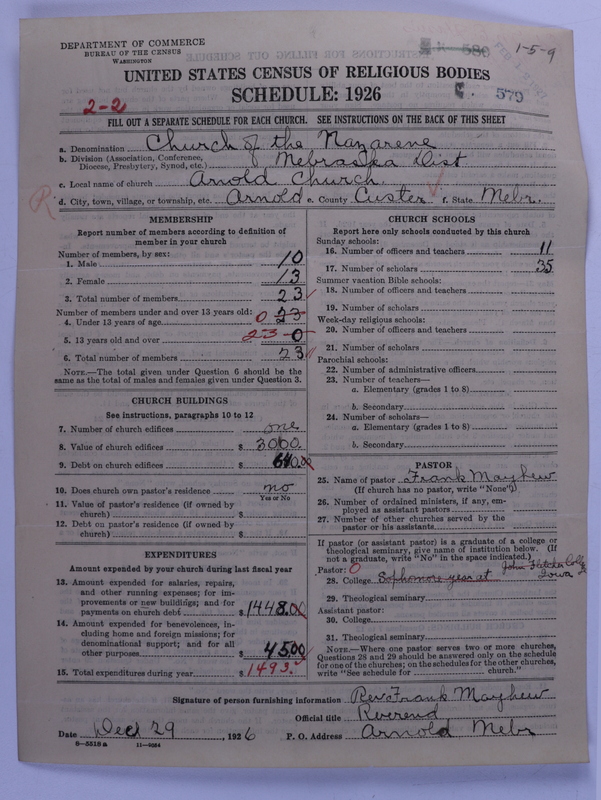 DEPARTMENT OF COMMERCE
BUREAU OF THE CENSUS
WASHINGTON
580
1-5-9
UNITED STATES CENSUS OF RELIGIOUS BODIES
SCHEDULE: 1926
579
2-2
FILL OUT A SEPARATE SCHEDULE FOR EACH CHURCH. SEE INSTRUCTIONS ON THE BACK OF THIS SHEET
a. Denomination Church of the Nazarene
b. Division (Association, Conference, Diocese, Presbytery, Synod, etc.) Nebraska Dist
c. Local name of church Arnold Church.
d. City, town, village, or township, etc. Arnold e. County Custer f. State Nebr.
MEMBERSHIP
Report number of members according to definition of
member in your church
Number of members, by sex:
1. Male 10
2. Female 13
3. Total number of members 23
Number of members under and over 13 years old:
4. Under 13 years of age 0 23
5. 13 years old and over 23 0
6. Total number of members 23
NOTE.—The total given under Question 6 should be
same as the total of males and females given under Question 3.
CHURCH BUILDINGS
See instructions, paragraphs 10 to 12
7. Number of church edifices one
8. Value of church edifices $ 3000.
9. Debt on church edifices $ 640.00
10. Does church own pastor's residence no
Yes or No
11. Value of pastor's residence (if owned by
church) $
12. Debt on pastor's residence (if owned by
church) $
EXPENDITURES
Amount expended by your church during last fiscal year
13. Amount expended for salaries, repairs,
and other running expenses; for im-
provements or new buildings; and for
payments on church debt $ 1448.00
14. Amount expended for benevolences, in-
cluding home and foreign missions; for
denominational support; and for all
other purposes 45.00
15. Total expenditures during year $ 1493.
CHURCH SCHOOLS
Report here only schools conducted by this church
Sunday schools:
16. Number of officers and teachers 11
17. Number of scholars 35
Summer vacation Bible schools:
18. Number of officers and teachers
19. Number of scholars
Week-day religious schools:
20. Number of officers and teachers
21. Number of scholars
Parochial schools:
22. Number of administrative officers
23. Number of teachers—
a. Elementary (grades 1 to 8)
b. Secondary
24. Number of scholars—
a. Elementary (grades 1 to 8)
b. Secondary
PASTOR
25. Name of pastor Frank Mayhew
(If church has no pastor, write "None")
26. Number of ordained ministers, if any, em-
ployed as assistant pastors
27. Number of other churches served by the
pastor or his assistants
If pastor (or assistant pastor) is a graduate of a college or
theological seminary, give name of institution below. (If
not a graduate, write "No" in the space indicated.)
Pastor: 0
28. College Sophomore year at John Fletcher Colg. Iowa
29. Theological seminary
Assistant pastor:
30. College
31. Theological seminary
NOTE.—Where one pastor serves two or more churches,
Questions 28 and 29 should be answered only on the schedule
for one of the churches; on the schedules for the other churches,
write "See schedule for church."
Signature of person furnishing information Rev. Frank Mayhew
Official title Reverend
Date Dec 29, 1926 P. O. Address Arnold Nebr
8—5518a 11—9064